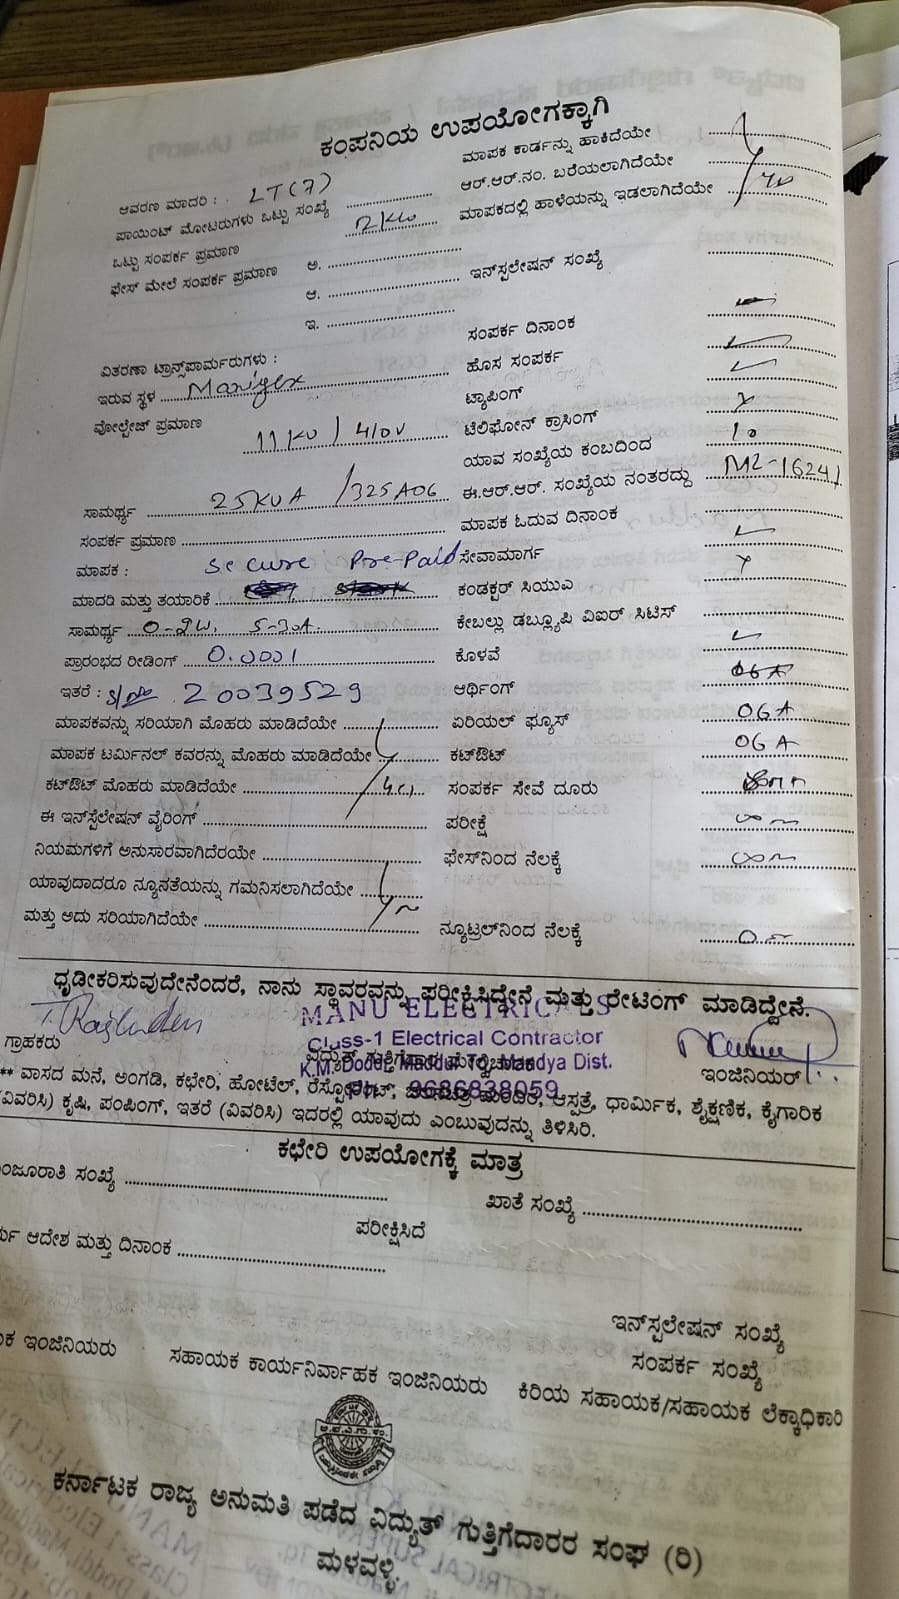 ಕಂಪನಿಯ ಉಪಯೋಗಕ್ಕಾಗಿ
ಆವರಣ ಮಾದರಿ : LT(7)
ಪಾಯಿಂಟ್ ಮೋಟರುಗಳು ಒಟ್ಟು ಸಂಖ್ಯೆ
ಒಟ್ಟು ಸಂಪರ್ಕ ಪ್ರಮಾಣ 2KW
ಫೇಸ್ ಮೇಲೆ ಸಂಪರ್ಕ ಪ್ರಮಾಣ ಅ.
ಆ.
ಇ.
ವಿತರಣಾ ಟ್ರಾನ್ಸ್‌ಫಾರ್ಮರುಗಳು :
ಇರುವ ಸ್ಥಳ
ವೋಲ್ಟೇಜ್ ಪ್ರಮಾಣ 11KV / 410V
ಸಾಮರ್ಥ್ಯ 25KVA /325A06
ಸಂಪರ್ಕ ಪ್ರಮಾಣ
ಮಾಪಕ : Secure Pre-Paid
ಮಾದರಿ ಮತ್ತು ತಯಾರಿಕೆ
ಸಾಮರ್ಥ್ಯ 5-30A.
ಪ್ರಾರಂಭದ ರೀಡಿಂಗ್ 0.0001
ಇತರೆ : S/No 20039529
ಮಾಪಕವನ್ನು ಸರಿಯಾಗಿ ಮೊಹರು ಮಾಡಿದೆಯೇ
ಮಾಪಕ ಟರ್ಮಿನಲ್ ಕವರನ್ನು ಮೊಹರು ಮಾಡಿದೆಯೇ
ಕಟ್‌ಔಟ್ ಮೊಹರು ಮಾಡಿದೆಯೇ
ಈ ಇನ್‌ಸ್ಟೆಲೇಷನ್ ವೈರಿಂಗ್
ನಿಯಮಗಳಿಗೆ ಅನುಸಾರವಾಗಿದೆರಯೇ
ಯಾವುದಾದರೂ ನ್ಯೂನತೆಯನ್ನು ಗಮನಿಸಲಾಗಿದೆಯೇ
ಮತ್ತು ಅದು ಸರಿಯಾಗಿದೆಯೇ
ಮಾಪಕ ಕಾರ್ಡನ್ನು ಹಾಕಿದೆಯೇ
ಆರ್.ಆರ್.ನಂ. ಬರೆಯಲಾಗಿದೆಯೇ
ಮಾಪಕದಲ್ಲಿ ಹಾಳೆಯನ್ನು ಇಡಲಾಗಿದೆಯೇ
ಇನ್‌ಸ್ಪಲೇಷನ್ ಸಂಖ್ಯೆ
ಸಂಪರ್ಕ ದಿನಾಂಕ
ಹೊಸ ಸಂಪರ್ಕ
ಟ್ಯಾಪಿಂಗ್
ಟೆಲಿಫೋನ್ ಕ್ರಾಸಿಂಗ್
ಯಾವ ಸಂಖ್ಯೆಯ ಕಂಬದಿಂದ
ಈ.ಆರ್.ಆರ್. ಸಂಖ್ಯೆಯ ನಂತರದ್ದು M2-16241
ಮಾಪಕ ಓದುವ ದಿನಾಂಕ
ಸೇವಾಮಾರ್ಗ
ಕಂಡಕ್ಟರ್ ಸಿಯುಎ
ಕೇಬಲ್ಲು ಡಬ್ಲ್ಯೂಪಿ ವಿಐಆರ್ ಸಿಟಿಸ್
ಕೊಳವೆ
ಅರ್ಥಿಂಗ್
ಏರಿಯಲ್ ಫ್ಯೂಸ್ 06A
ಕಟ್‌ಔಟ್ 06A
ಸಂಪರ್ಕ ಸೇವೆ ದೂರು
ಪರೀಕ್ಷೆ
ಫೇಸ್‌ನಿಂದ ನೆಲಕ್ಕೆ
ನ್ಯೂಟ್ರಲ್‌ನಿಂದ ನೆಲಕ್ಕೆ
ಧೃಡೀಕರಿಸುವುದೇನೆಂದರೆ, ನಾನು ಸ್ಥಾವರವನ್ನು ಪರೀಕ್ಷಿಸಿದ್ದೇನೆ ಮತ್ತು ರೇಟಿಂಗ್ ಮಾಡಿದ್ದೇನೆ.
MANU ELECTRICALS
Class-1 Electrical Contractor
K.M. Doddi, Maddur Tq, Mandya Dist.
Ph : 9686838059
ಗ್ರಾಹಕರು
ಇಂಜಿನಿಯರ್
** ವಾಸದ ಮನೆ, ಅಂಗಡಿ, ಕಛೇರಿ, ಹೋಟೆಲ್, ಆಸ್ಪತ್ರೆ, ಧಾರ್ಮಿಕ, ಶೈಕ್ಷಣಿಕ, ಕೈಗಾರಿಕ
(ವಿವರಿಸಿ) ಕೃಷಿ, ಪಂಪಿಂಗ್, ಇತರೆ (ವಿವರಿಸಿ) ಇದರಲ್ಲಿ ಯಾವುದು ಎಂಬುವುದನ್ನು ತಿಳಿಸಿರಿ.
ಕಛೇರಿ ಉಪಯೋಗಕ್ಕೆ ಮಾತ್ರ
ಸಂಖ್ಯೆ
ಖಾತೆ ಸಂಖ್ಯೆ
ಪರೀಕ್ಷಿಸಿದೆ
ಆದೇಶ ಮತ್ತು ದಿನಾಂಕ
ಇನ್‌ಸ್ಪಲೇಷನ್ ಸಂಖ್ಯೆ
ಸಂಪರ್ಕ ಸಂಖ್ಯೆ
ಇಂಜಿನಿಯರು
ಸಹಾಯಕ ಕಾರ್ಯನಿರ್ವಾಹಕ ಇಂಜಿನಿಯರು
ಕಿರಿಯ ಸಹಾಯಕ/ಸಹಾಯಕ ಲೆಕ್ಕಾಧಿಕಾರಿ
ಕರ್ನಾಟಕ ರಾಜ್ಯ ಅನುಮತಿ ಪಡೆದ ವಿದ್ಯುತ್ ಗುತ್ತಿಗೆದಾರರ ಸಂಘ (ರಿ)
ಮಳವಳ್ಳಿ.